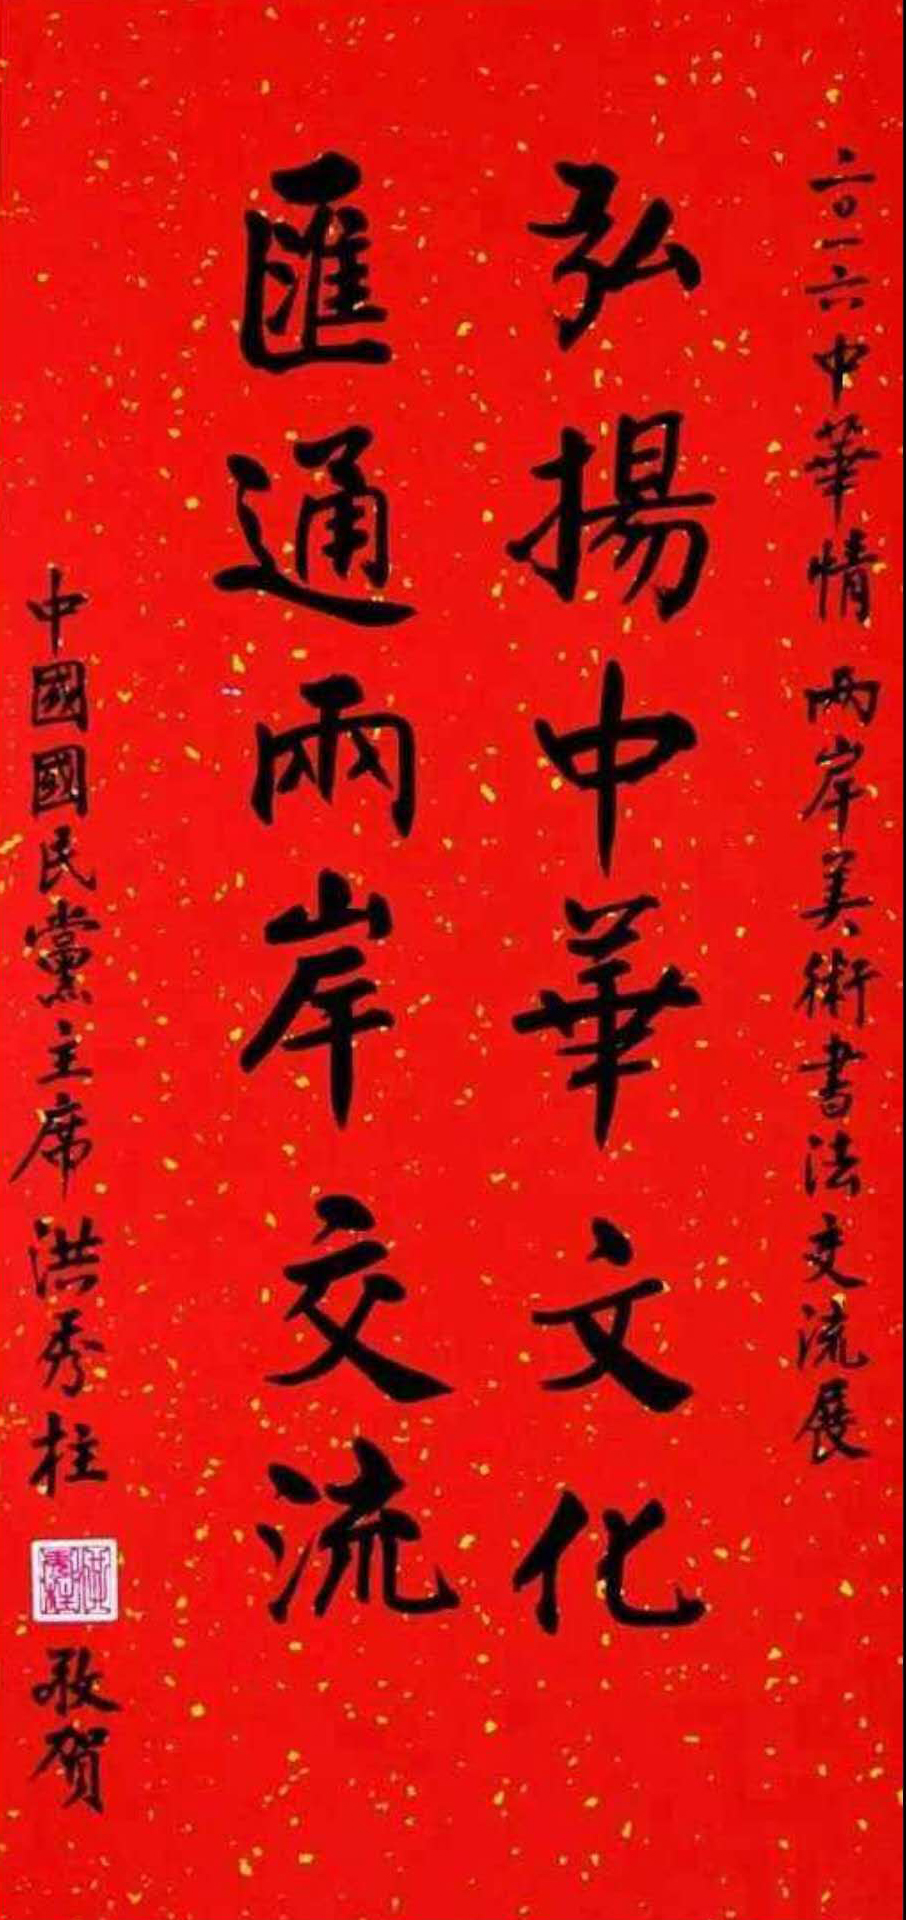 二〇一六中華情 两岸美術書法交流展
弘揚中華文化
匯通兩岸交流
中國國民黨主席洪秀柱
洪秀柱
敬賀